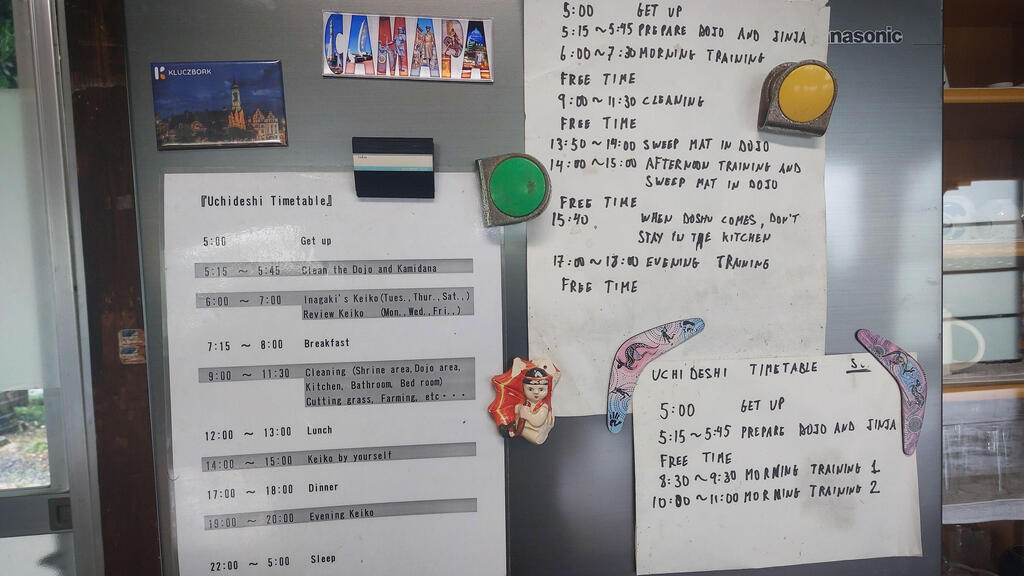 KLUCZBORK
CANADA
Panasonic
『Uchideshi Timetable』
5:00 Get up
5:15 ～ 5:45 Clean the Dojo and Kamidana
6:00 ～ 7:00 Inagaki's Keiko(Tues.,Thur.,Sat.,)
Review Keiko (Mon.,Wed.,Fri.,)
7:15 ～ 8:00 Breakfast
9:00 ～ 11:30 Cleaning (Shrine area,Dojo area,
Kitchen, Bathroom, Bed room)
Cutting grass, Farming, etc・・・
12:00 ～ 13:00 Lunch
14:00 ～ 15:00 Keiko by yourself
17:00 ～ 18:00 Dinner
19:00 ～ 20:00 Evening Keiko
22:00 ～ 5:00 Sleep
5:00 GET UP
5:15~5:45 PREPARE DOJO AND JINJA
6:00~7:30 MORNING TRAINING
FREE TIME
9:00~11:30 CLEANING
FREE TIME
13:50~14:00 SWEEP MAT IN DOJO
14:00~15:00 AFTERNOON TRAINING AND
SWEEP MAT IN DOJO
FREE TIME
15:40 WHEN DOSHU COMES, DON'T
STAY IN THE KITCHEN
17:00~18:00 EVENING TRAINING
FREE TIME
UCHIDESHI TIMETABLE Su.
5:00 GET UP
5:15~5:45 PREPARE DOJO AND JINJA
FREE TIME
8:30~9:30 MORNING TRAINING 1
10:00~11:00 MORNING TRAINING 2